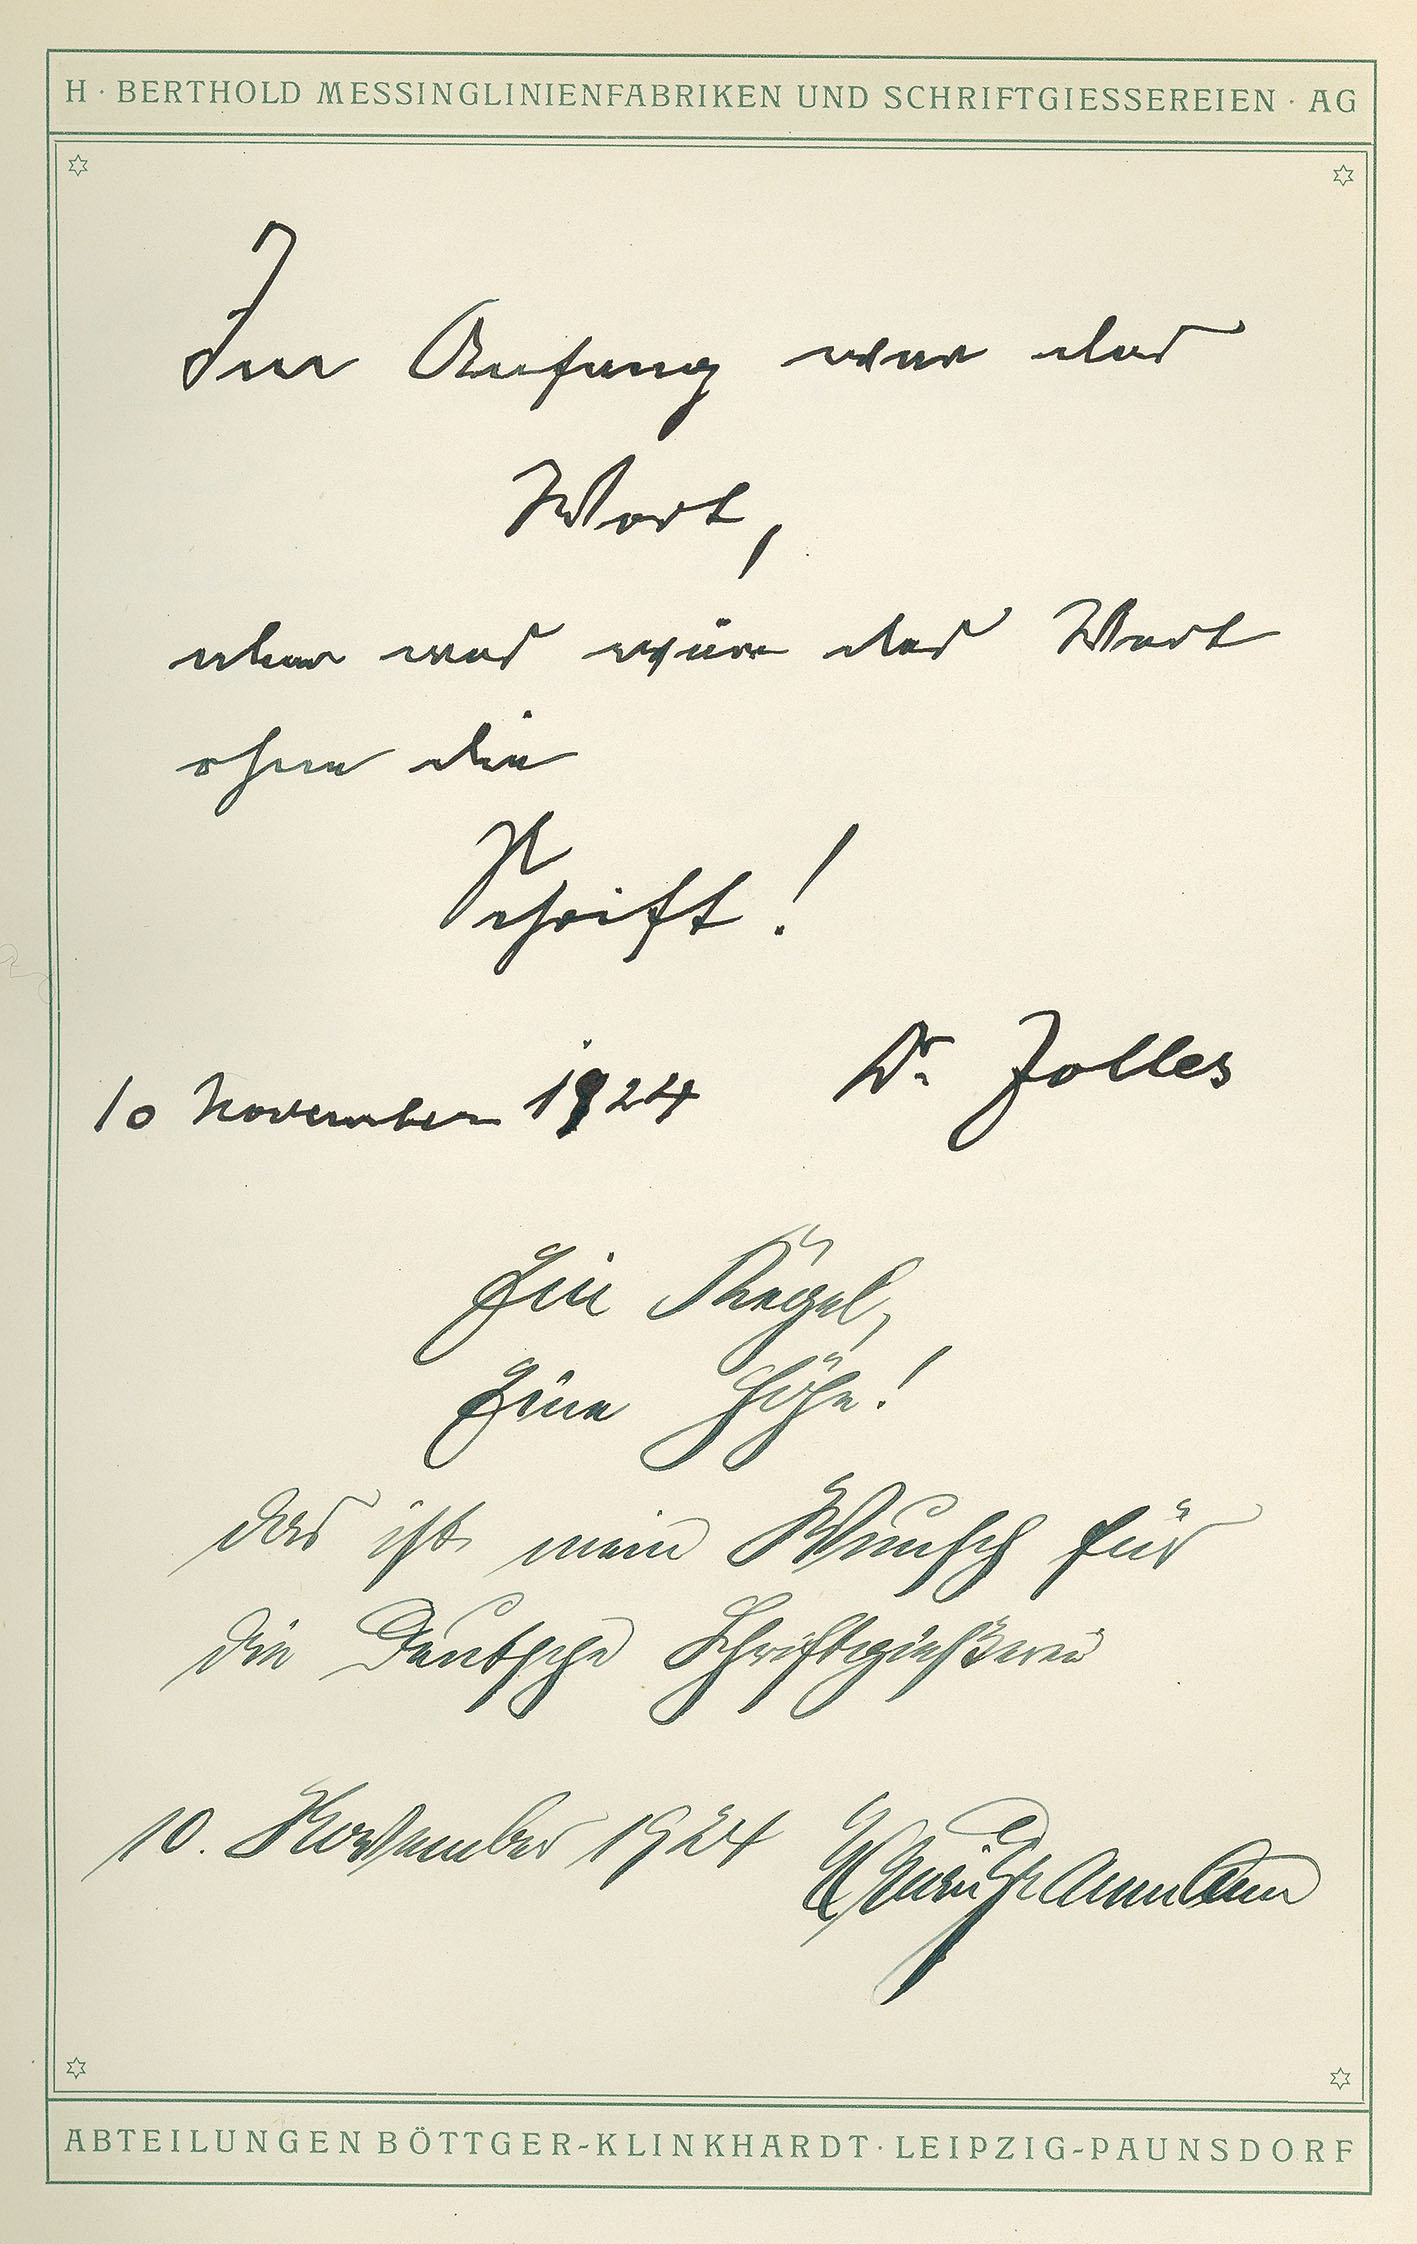 H · BERTHOLD MESSINGLINIENFABRIKEN UND SCHRIFTGIESSEREIEN · AG
Im Anfang war das
Wort,
aber was wäre das Wort
ohne die
Schrift!
10 November 1924 Dr Jolles
Ein Kegel,
Eine Höhe!
das ist mein Wunsch für
die Deutsche Schriftgießerei
10. November 1924
ABTEILUNGEN BÖTTGER-KLINKHARDT · LEIPZIG-PAUNSDORF